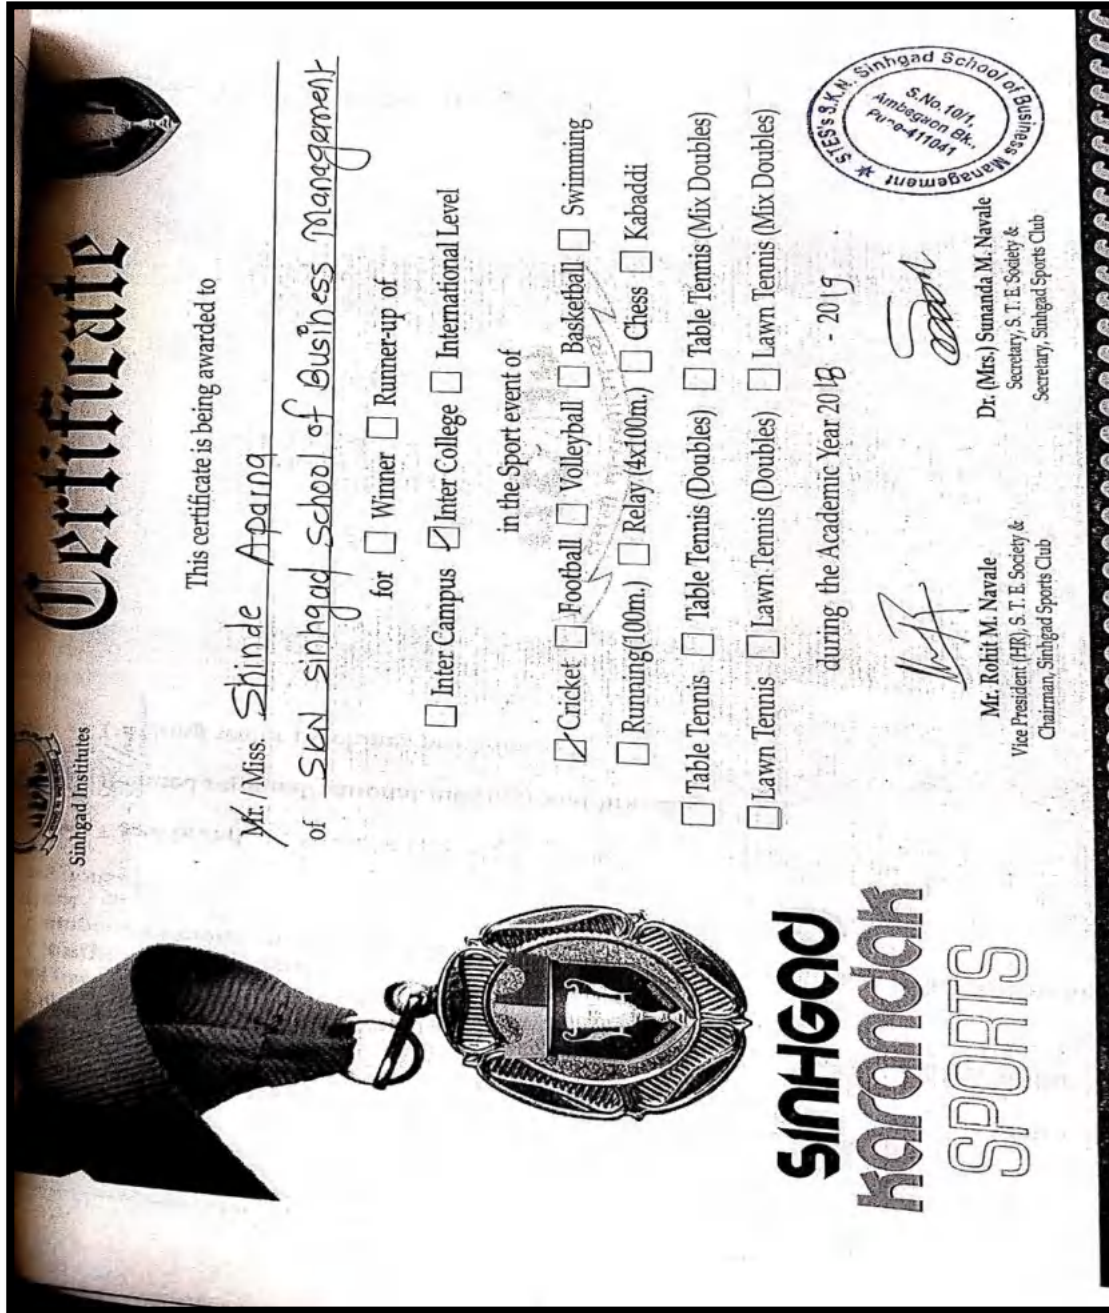 Sinhgad Institutes
Certificate
This certificate is being awarded to
Mr. / Miss. Shinde Aparna
of SKN sinhgad school of Business Management
for ☐ Winner ☐ Runner-up of
☐ Inter Campus ☑ Inter College ☐ International Level
in the Sport event of
☑ Cricket ☐ Football ☐ Volleyball ☐ Basketball ☐ Swimming
☐ Running(100m.) ☐ Relay (4x100m.) ☐ Chess ☐ Kabaddi
☐ Table Tennis ☐ Table Tennis (Doubles) ☐ Table Tennis (Mix Doubles)
☐ Lawn Tennis ☐ Lawn Tennis (Doubles) ☐ Lawn Tennis (Mix Doubles)
during the Academic Year 2018 - 2019.
Mr. Rohit M. Navale
Vice President (HR), S. T. E. Society &
Chairman, Sinhgad Sports Club
Dr. (Mrs.) Sunanda M. Navale
Secretary, S. T. E. Society &
Secretary, Sinhgad Sports Club
STES's S.K.N. Sinhgad School of Business Management
S.No.10/1,
Ambegaon Bk.,
Pune-411041
SINHGAD
karandak
SPORTS